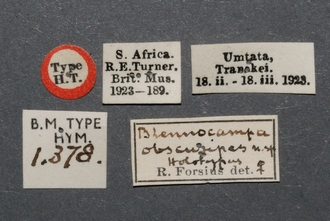 Type
H.T.
S. Africa.
R.E.Turner.
Brit. Mus.
1923—189.
Umtata,
Transkei.
18. ii. - 18. iii. 1923.
B.M. TYPE
HYM.
1.378.
Blennocampa
obscuripes n.sp.
Holotypus ♀
R. Forsius det.